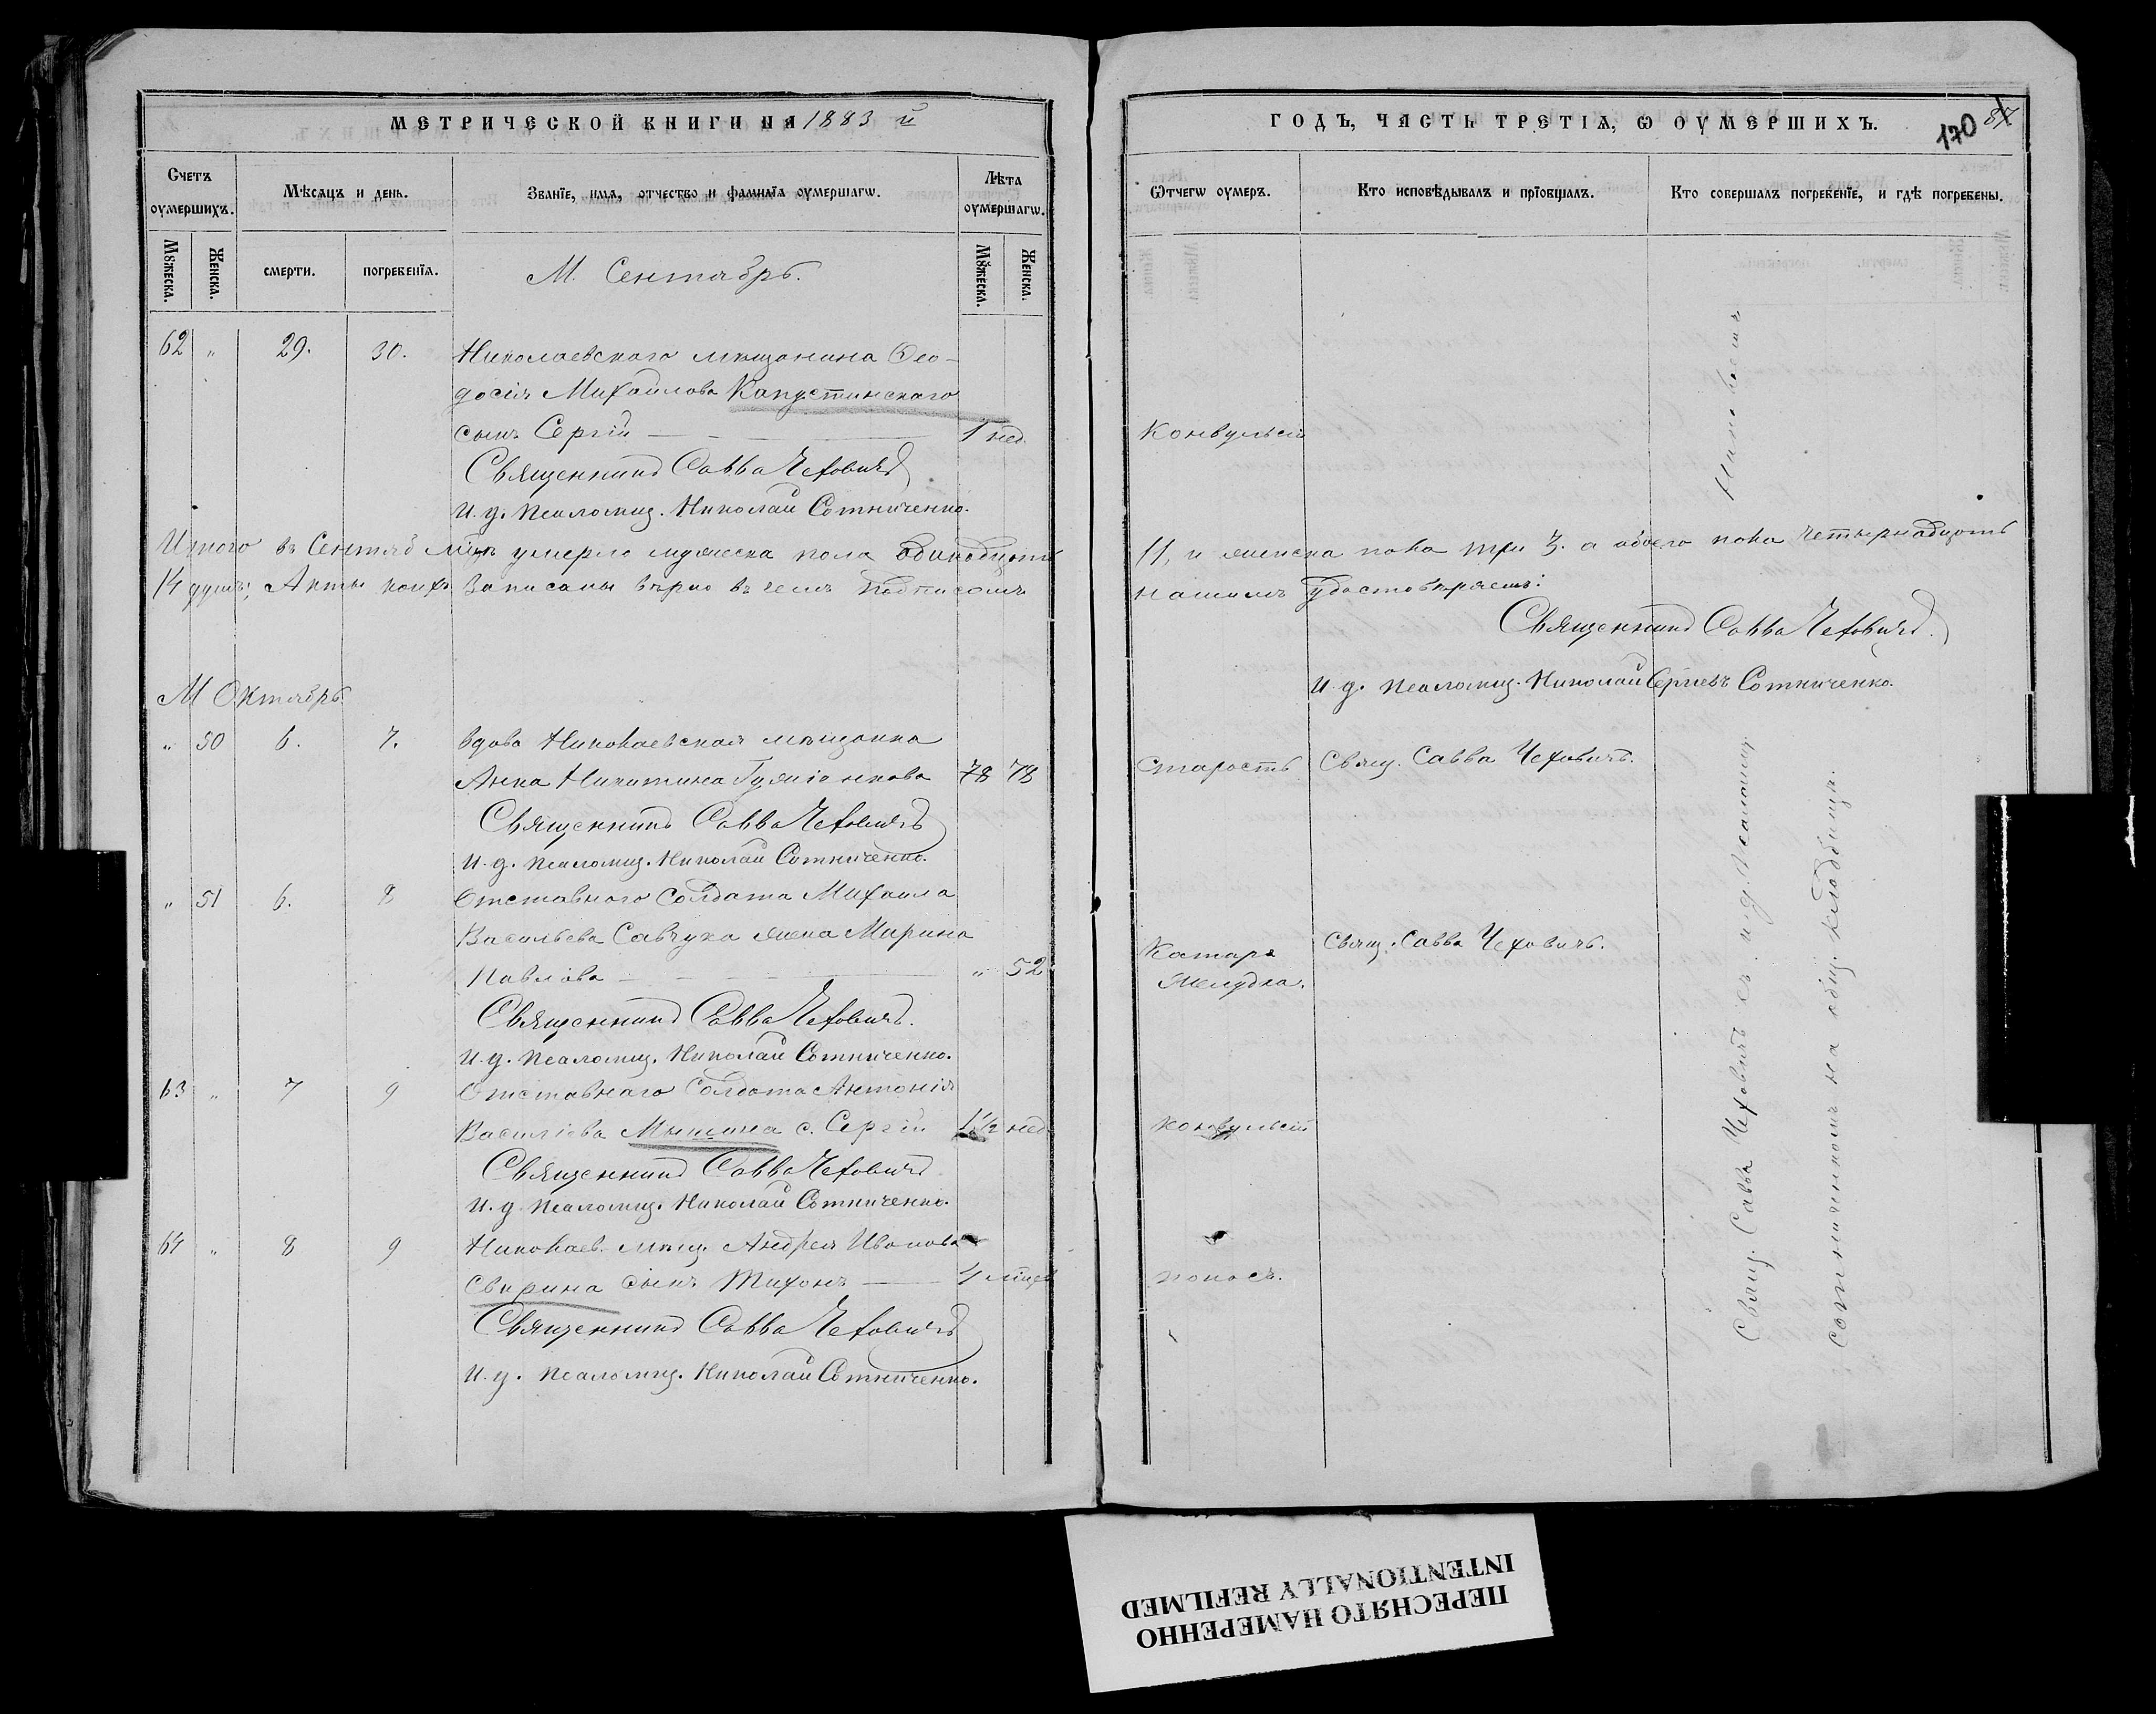 МЕТРИЧЕСКОЙ КНИГИ НА 1883 й
Счетъ оумершихъ.
Мѣсяцъ и день.
Званїе, имя, отчество и фамилїя оумершагѡ.
Лѣта оумершагѡ.
Мꙋжеска.
Женска.
смерти.
погребенїя.
Мꙋжеска.
Женска.
М. Сентябрь.
62 „ 29. 30. Николаевского мѣщанина Ѳео-
досія Михайлова Капустинского
сынъ Сергій — 1 нед.
Священникъ Савва Чеховичъ
И. д. псаломщ. Николай Сотниченко.
Итого въ Сентяб мцѣ умерло мужеска пола одинадцать
14 душъ; Акты коихъ записаны вѣрно въ чемъ подписомъ
М Октябрь.
„ 50 6. 7. вдова Николаевская мѣщанка
Анна Никитина 78 78
Священникъ Савва Чеховичъ
И. д. псаломщ. Николай Сотниченко.
„ 51 6. 8 Отставного Солдата Михаила
Васильева Савчука жена Марина
Павлова — „ 52
Священникъ Савва Чеховичъ.
И. д. псаломщ. Николай Сотниченко.
63 „ 7 9 Отставнаго Солдата Антонія
Василіева с. Сергій 1½ нед.
Священникъ Савва Чеховичъ
И. д псаломщ. Николай Сотниченко.
64 „ 8 9 Николаев. мѣщ. Андрея Иванова
Свирина сынъ Тихонъ — 4 мцев
Священникъ Савва Чеховичъ
И. д. псаломщ. Николай Сотниченко.
ГОДЪ, ЧАСТЬ ТРЕТІЯ, Ѡ ОУМЕРШИХЪ.
170
87
Ѿтчегѡ оумеръ.
Кто исповѣдывалъ и прїобщалъ.
Кто совершалъ погребенїе, и гдѣ погребены.
Конвульсіи
11, и женска пола три 3. а обоего пола четырнадцать
нашимъ удостовѣряемъ:
Священникъ Савва Чеховичъ.
И. д. псаломщ. Николай Сергіевъ Сотниченко.
Старость Свящ. Савва Чеховичъ.
Катара Свящ. Савва Чеховичъ.
желудка.
конвульсіи
поносъ.
Свящ. Савва Чеховичъ съ и. д. псаломщ. Николаемъ
Сотниченкомъ на общ. кладбищѣ.
ПЕРЕСНЯТО НАМЕРЕННО
INTENTIONALLY REFILMED